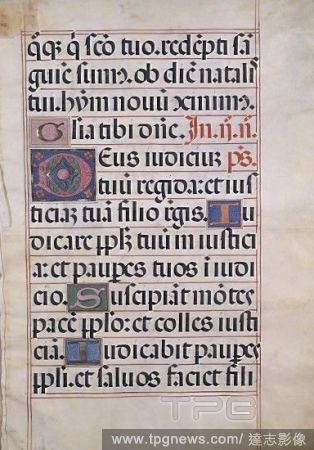 q̃qꝫ q̃ scõ tuo. redẽpti sã
guĩe sumꝰ. ob diẽ natal
tui. hỹm nouũ ꝯinimꝰ.
Glia tibi dñe. In. ij. n̄.
Deus iudiciuꝫ ps̃.
tuũ regi da: et ius
ticiaꝫ tuã filio r̃gis. Iu
dicare pp̃lꝫ tuũ in iustici
a: et paupes tuos i iudi
cio. Suscipiãt mõtes
pacẽ pp̃lo: et colles iusti
ciã. Iudicabit paupes
pp̃li. et saluos faciet fili
TPG
www.tpgnews.com/ 達志影像